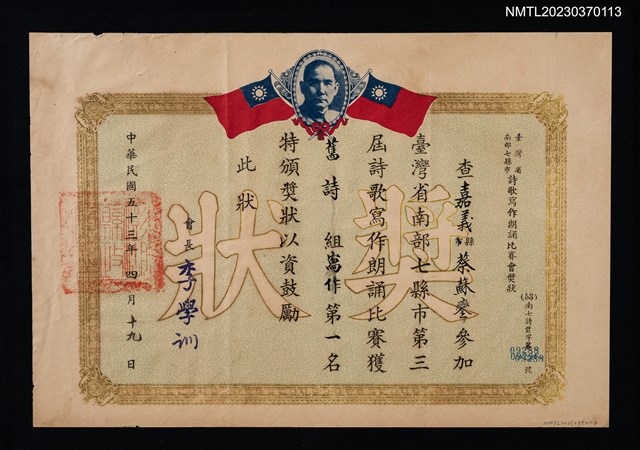 NMTL20230370113
臺灣省
南部七縣市
詩歌寫作朗誦比賽會獎狀
(53)南七詩獎字第 號
獎狀
查嘉義縣市蔡蘇麥參加
臺灣省南部七縣市第三
屆詩歌寫作朗誦比賽獲
舊詩組寫作第一名
特頒獎狀以資鼓勵
此狀
會長 李學訓
中華民國五十三年四月十九日